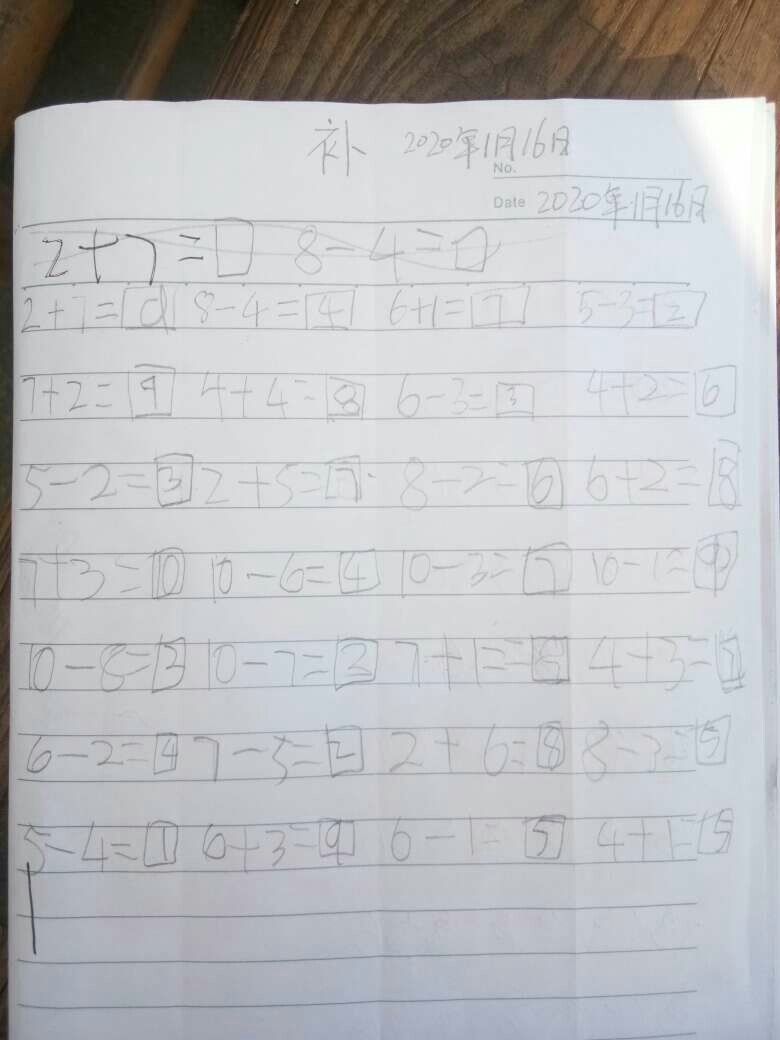 补 2020年1月16日
No.
Date 2020年1月16日
2+7=□ 8-4=□
2+7= 8-4=4 6+1=7 5-3=2
7+2=9 4+4=8 6-3=3 4+2=6
5-2=3 2+5=7 8-2=6 6+2=8
7+3=10 10-6=4 10-3=7 10-1=9
10-8=2 10-7=3 7+1=8 4+3=7
6-2=4 7-5=2 2+6=8 8-3=5
5-4=1 6+3=9 6-1=5 4+1=5